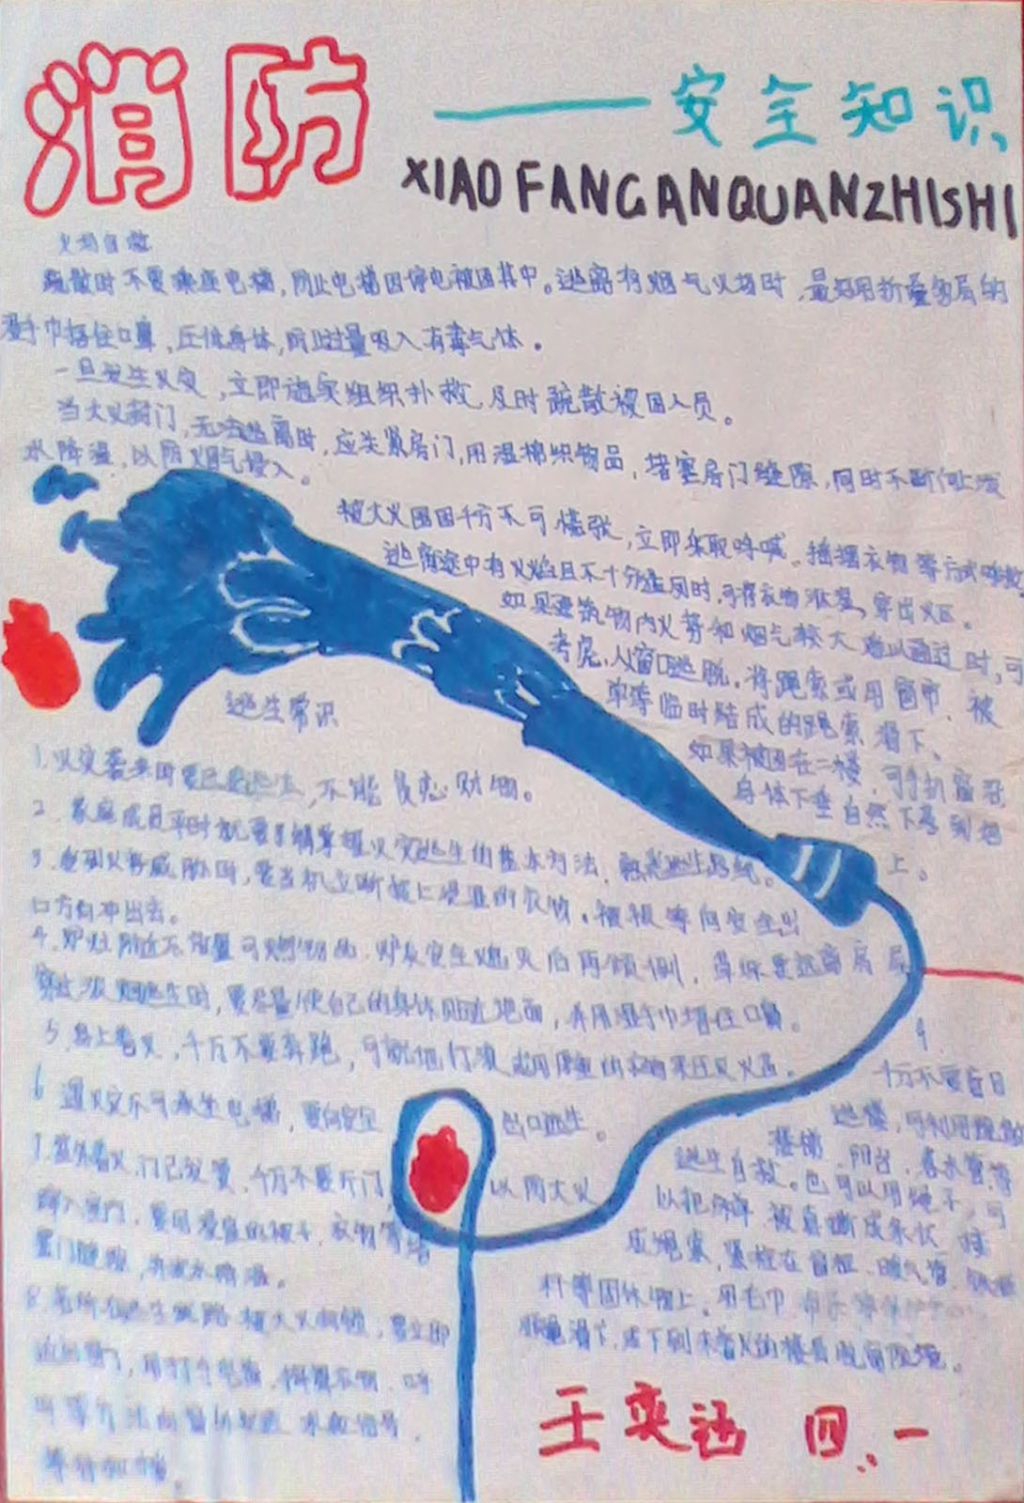 消防
——安全知识
XIAO FANGANQUANZHISHI
火场自救
疏散时不要乘座电梯,防止电梯因停电被困其中。逃离有烟气火场时,最好用折叠多层的
湿手巾捂住口鼻,压低身体,防止过量吸入有毒气体。
一旦发生火灾,立即施实组织扑救,及时疏散被困人员。
当大火封门,无法逃离时,应关紧房门,用湿棉织物品,堵塞房门缝隙,同时不断向上泼
水降温,以防烟气侵入。
被大火围困千万不可慌张,立即采取呼喊、摇摆衣物等方式呼救
逃离途中有火焰且不十分
时,可将衣物
穿出火区。
如果建筑物内火势和烟气较大难以通过时,可
考虑,从窗口逃脱。将绳索或用窗帘、被
单等临时结成的绳索滑下、
如果被困在二楼,可
身体下垂自然下
到地
上。
逃生常识
1.火灾袭来时要迅速逃生,不能贪恋财物。
2.家庭成员平时就要了解掌握火灾逃生的基本方法,熟悉逃生路线。
3.受到火势威胁时,要当机立断披上浸湿的衣物、被褥等向安全出
口方向冲出去。
4.炉灶附近不放置可燃物品,
穿过浓烟逃生时,要尽量使自己的身体贴近地面,并用湿手巾捂住口鼻。
5.身上着火,千万不要奔跑,可就地打滚或用厚重的衣物来压灭火苗。
6 遇火灾不可乘坐电梯,要向安全 出口逃生。
7.室外着火,门已发烫,千万不要开门 以防大火
窜入室内,要用浸湿的被子、衣物等堵
塞门缝隙,并泼水降温。
8.若所有逃生线路被大火封锁,要立即
退回室内,用打手电筒,挥舞衣物、呼
叫等方式向窗外发送求救信号,
等待救援。
9.
千万不要盲目
逃生自救。也可以用绳子,可
以把床单、被
成条状
成绳索,紧栓在窗框、暖气管、
杆等固体物上,用毛巾
顺绳滑下,或下到未着火的楼层脱离险境。
王奕涵 四.一